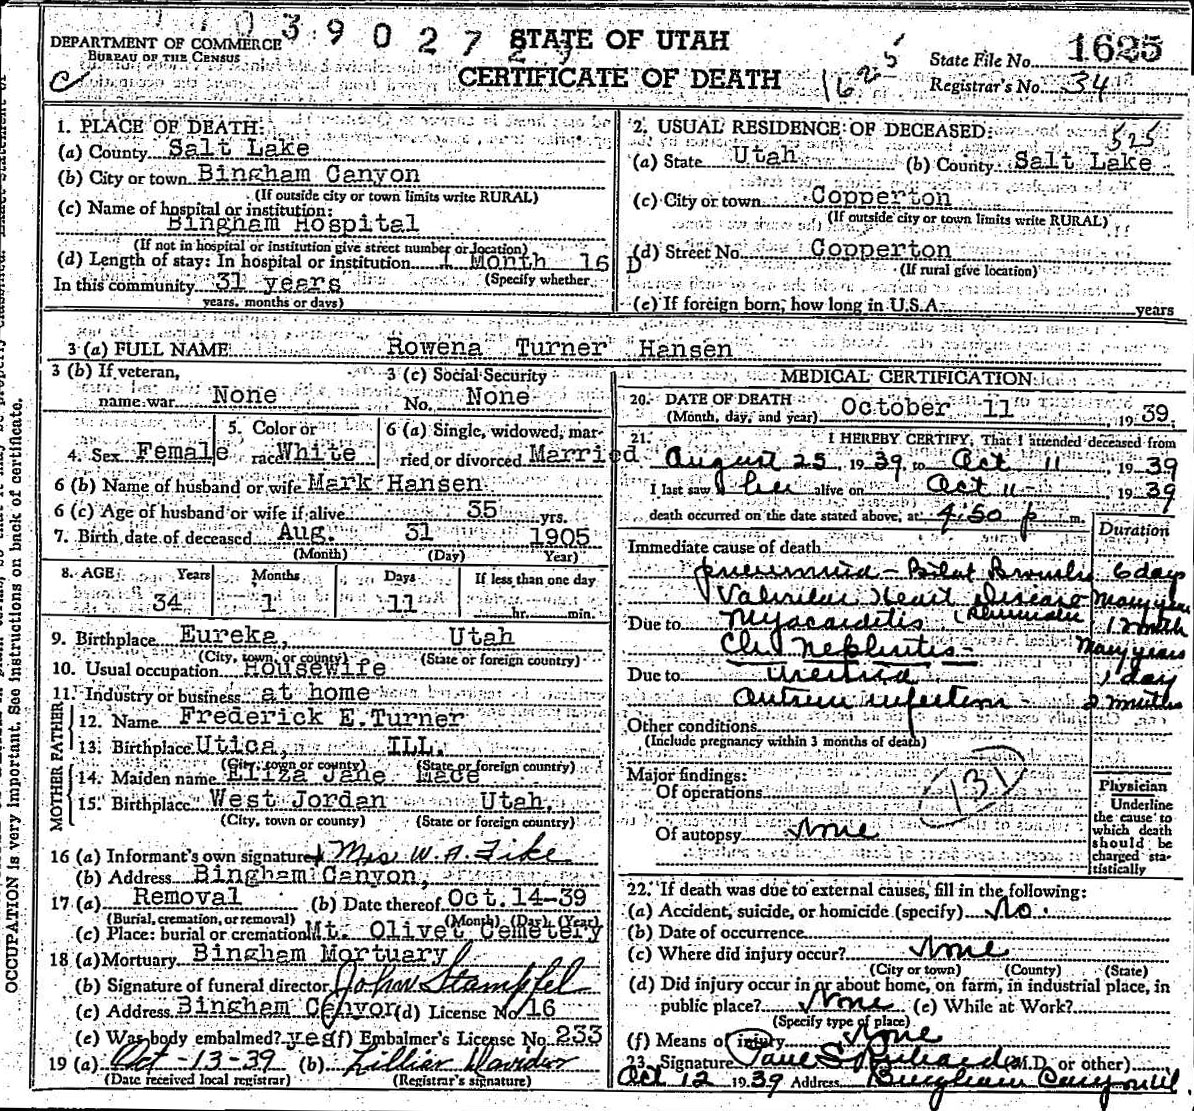 DEPARTMENT OF COMMERCE
BUREAU OF THE CENSUS
C
3 9 0 2 7
STATE OF UTAH
CERTIFICATE OF DEATH
State File No. 1625
Registrar's No. 34
1. PLACE OF DEATH:
(a) County Salt Lake
(b) City or town Bingham Canyon
(If outside city or town limits write RURAL)
(c) Name of hospital or institution:
Bingham Hospital
(If not in hospital or institution give street number or location)
(d) Length of stay: In hospital or institution 1 Month 16 D
(Specify whether
In this community 31 years
years, months or days)
2. USUAL RESIDENCE OF DECEASED:
525
(a) State Utah (b) County Salt Lake
(c) City or town Copperton
(If outside city or town limits write RURAL)
(d) Street No. Copperton
(If rural give location)
(e) If foreign born, how long in U.S.A. years
3 (a) FULL NAME Rowena Turner Hansen
3 (b) If veteran,
name war None
3 (c) Social Security
No. None
4. Sex Female
5. Color or
race White
6 (a) Single, widowed, mar-
ried or divorced Married
6 (b) Name of husband or wife Mark Hansen
6 (c) Age of husband or wife if alive 35 yrs.
7. Birth date of deceased Aug. 31 1905
(Month) (Day) (Year)
8. AGE Years Months Days If less than one day
34 1 11 hr. min.
9. Birthplace Eureka, Utah
(City, town, or county) (State or foreign country)
10. Usual occupation Housewife
11. Industry or business at home
FATHER
12. Name Frederick E. Turner
13. Birthplace Utica, ILL.
(City, town or county) (State or foreign country)
MOTHER
14. Maiden name Eliza Jane Mace
15. Birthplace West Jordan Utah,
(City, town or county) (State or foreign country)
16 (a) Informant's own signature Mrs W. A. Fike
(b) Address Bingham Canyon,
17 (a) Removal (b) Date thereof Oct. 14-39
(Burial, cremation, or removal) (Month) (Day) (Year)
(c) Place: burial or cremation Mt. Olivet Cemetery
18 (a) Mortuary Bingham Mortuary
(b) Signature of funeral director John Stampfel
(c) Address Bingham Canyon (d) License No. 16
(e) Was body embalmed? yes (f) Embalmer's License No. 233
19 (a) Oct-13-39 (b) Lillian Davidson
(Date received local registrar) (Registrar's signature)
MEDICAL CERTIFICATION
20. DATE OF DEATH
(Month, day, and year) October 11, 1939.
21. I HEREBY CERTIFY, That I attended deceased from
August 25, 1939, to Oct 11, 1939
I last saw her alive on Oct 11- 1939
death occurred on the date stated above, at 4:50 p m.
Duration
Immediate cause of death
pneumonia - Bilat Broncho 6 days
Valvular Heart Disease Many years
Due to Myocarditis 1 month
Chr Nephritis - Many years
Due to Uremia 1 day
Antrum infection - 2 months
Other conditions
(Include pregnancy within 3 months of death)
Major findings:
Of operations
131
Of autopsy None
Physician
Underline
the cause to
which death
should be
charged sta-
tistically
22. If death was due to external causes, fill in the following:
(a) Accident, suicide, or homicide (specify) No.
(b) Date of occurrence
(c) Where did injury occur? None
(City or town) (County) (State)
(d) Did injury occur in or about home, on farm, in industrial place, in
public place? None (e) While at Work?
(Specify type of place)
(f) Means of injury None
23. Signature Paul S. Richards (M.D. or other)
Oct 12 1939 Address Bingham Canyon Ut.
OCCUPATION is very important. See instructions on back of certificate.